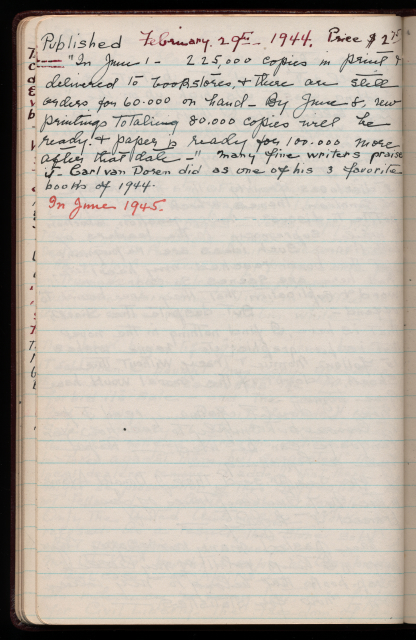 Published February 29th 1944. Price $2.75
"In June 1 - 225,000 copies in print &
delivered to bookstores, & there are still
orders for 60.000 on hand - By June 8, new
printings totaling 80.000 copies will be
ready. & paper is ready for 100.000 more
after that date -" many fine writers praise
it - Carl van Doren did as one of his 3 favorite
books of 1944.
In June 1945.